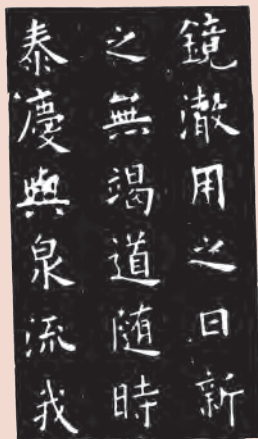 鏡澈用之日新
之無竭道隨時
泰慶與泉流我